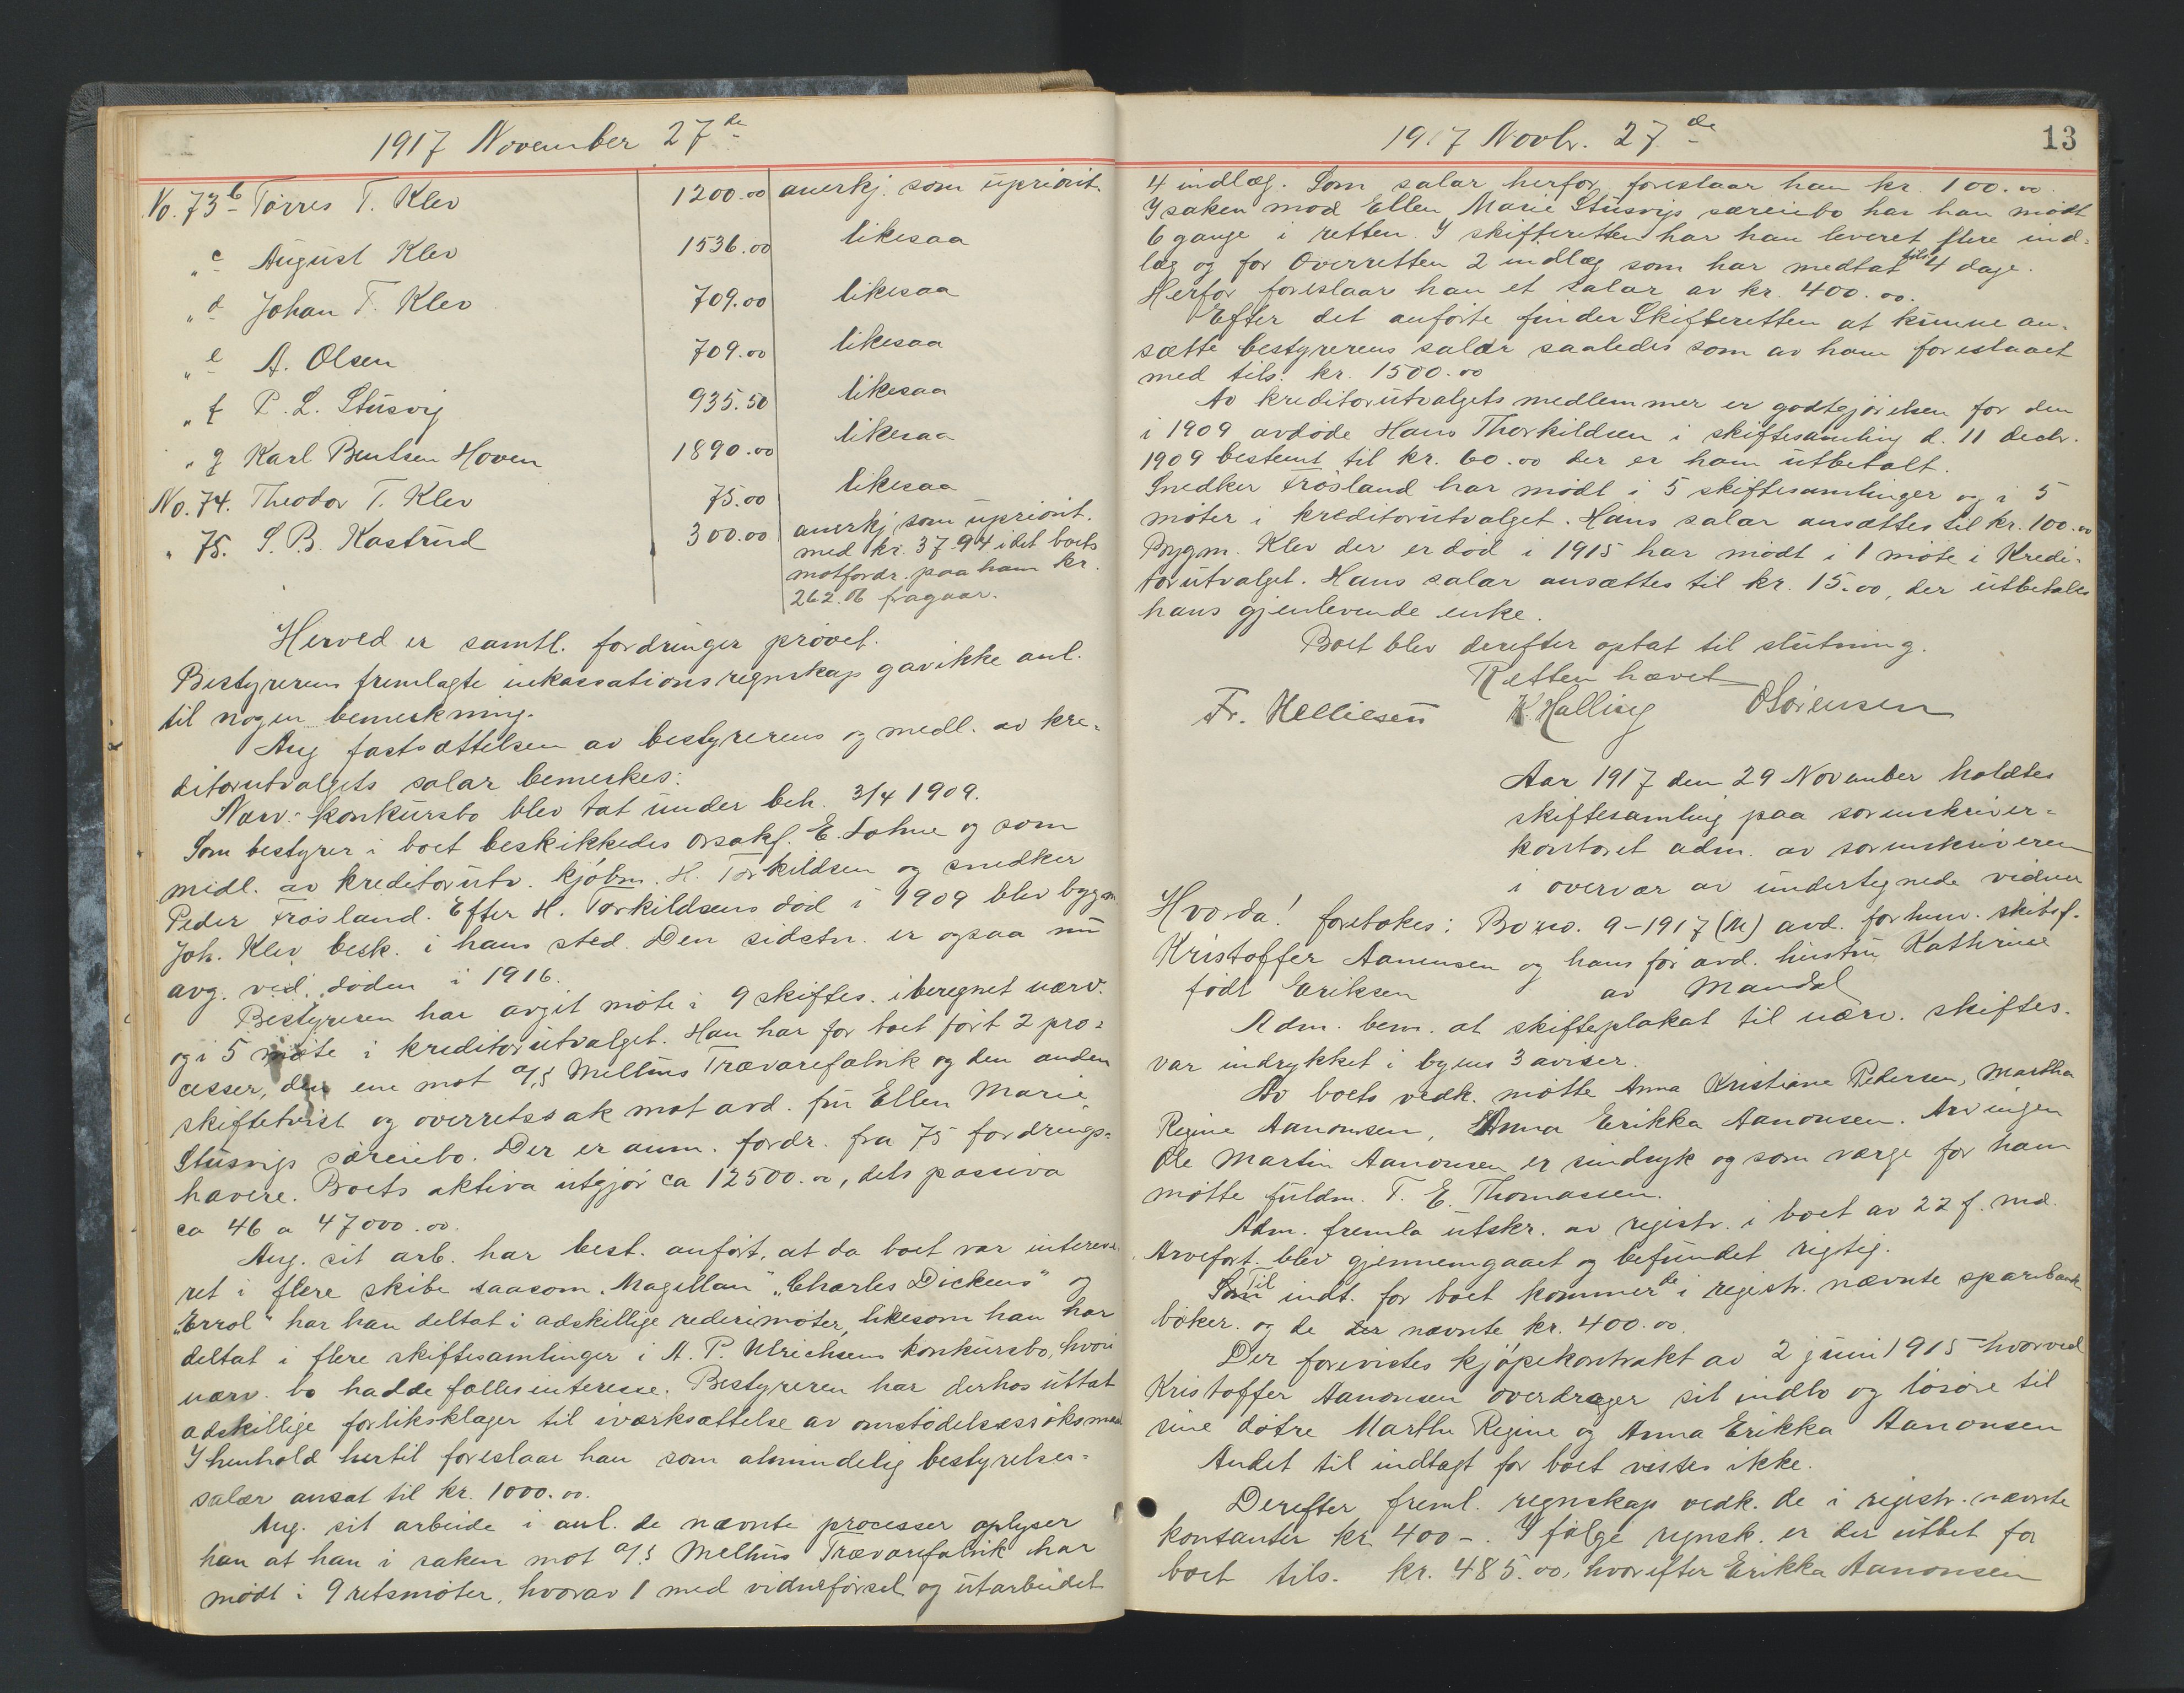 1917 November 27de
No. 73 b Törres T. Klev 1200.00 anerkj. som upriorit.
" c August Klev 1536.00 likesaa
" d Johan T. Klev 709.00 likesaa
" e A. Olsen 709.00 likesaa
" f P. L. Stusvig 935.50 likesaa
" g Karl Bentsen Hoven 1890.00 likesaa
No. 74. Theodor T. Klev 75.00 likesaa
" 75. S. B. Kastrud 300.00 anerkj. som upriorit.
med kr. 37.94 idet boets
motfordr. paa ham kr.
262.06 fragaar.
Herved er samtl. fordringer prövet.
Bestyrerens fremlagte inkassationsregnskap gav ikke anl.
til nogen bemerkning.
Ang fastsættelsen av bestyrerens og medl. av kre-
ditorutvalgets salar bemerkes:
Nærv. konkursbo blev tat under beh. 3/4 1909.
Som bestyrer i boet beskikkedes orsakf. E. Lohne og som
medl. av kreditorutv. kjöbm. H. Torkildsen og snedker
Peder Frösland. Efter H. Torkildsens död i 1909 blev bygm.
Joh. Klev besk. i hans sted. Den sidstn. er ogsaa nu
avg. ved döden i 1916.
Bestyreren har avgit möte i 9 skiftes. iberegnet nærv.
og i 5 möte i kreditorutvalget. Han har for boet fört 2 pro-
cesser, den ene mot a/s Melhus Trævarefabrik og den anden
skiftetvist og overretssak mot avd. fru Ellen Marie
Stusvigs særeiebo. Der er anm. fordr. fra 75 fordrings-
havere. Boets aktiva utgjör ca 12500.00, dets passiva
ca 46 a 47000.00.
Ang. sit arb. har best. anfört, at da boet var interes-
ret i flere skibe saasom "Magellan" "Charles Dickens" og
"Errol" har han deltat i adskillige rederimöter, likesom han har
deltat i flere skiftesamlinger i A. P. Ulrichsens konkursbo, hvori
nærv. bo hadde fællesinteresse. Bestyreren har derhos uttat
adskillige forliksklager til iværksættelse av omstödelsessöksmaal
I henhold hertil foreslaar han som almindelig bestyrelses-
salær ansat til kr. 1000.00.
Ang. sit arbeide i anl. de nævnte processer oplyser
han at han i saken mot a/s Melhus Trævarefabrik har
mödt i 9 retsmöter, hvorav 1 med vidneförsel og utarbeidet
1917 Novbr. 27de
13
4 indlæg. Som salar herfor foreslaar han kr. 100.00.
I saken mod Ellen Marie Stusvigs særeiebo har han mödt
6 gange i retten. I skifteretten har han leveret flere ind-
læg og for Overretten 2 indlæg som har medtat tils. 4 dage.
Herfor foreslaar han et salar av kr. 400.00.
Efter det anförte finder Skifteretten at kunne an-
sætte bestyrerens salær saaledes som av ham foreslaaet
med tils. kr. 1500.00
Av kreditorutvalgets medlemmer er godtgjörelsen for den
i 1909 avdöde Hans Thorkildsen i skiftesamling d. 11 decbr.
1909 bestemt til kr. 60.00 der er ham utbetalt.
Snedker Frösland har mödt i 5 skiftesamlinger og i 5
möter i kreditorutvalget. Hans salar ansættes til kr. 100.00
Bygm. Klev der er död i 1915 har mödt i 1 möte i Kredi-
torutvalget. Hans salar ansættes til kr. 15.00, der utbetales
hans gjenlevende enke.
Boet blev derefter optat til slutning.
Retten hævet
Fr. Helliesen K. Halling O Sörensen
Aar 1917 den 29 November holdtes
skiftesamling paa sorenskriver-
kontoret adm. av sorenskriveren
i overvær av undertegnede vidner
Hvorda! foretokes: Bo no. 9-1917 (M) avd. forhenv. skibsf.
Kristoffer Aanensen og hans för avd. hustru Kathrine
födt Eriksen av Mandal
Adm. bem. at skifteplakat til nærv. skiftes.
var indrykket i byens 3 aviser.
Av boets vedk. mötte Anna Kristiane Pedersen, Martha
Regine Aanonsen, Anna Erikka Aanonsen. Arvingen
Ole Martin Aanonsen er sindsyk og som værge for ham
mötte fuldm. T. E. Thomassen.
Adm. fremla utskr. av registr. i boet av 22 f. md.
Arvefort. blev gjennemgaaet og befundet rigtig.
Til indt. for boet kommer de i registr. nævnte sparebank-
böker og de der nævnte kr. 400.00.
Der forevistes kjöpekontrakt av 2 juni 1915 hvorved
Kristoffer Aanonsen overdrager sit indbo og lösöre til
sine dötre Marthe Regine og Anna Erikka Aanonsen
Andet til indtægt for boet vistes ikke.
Derefter freml. regnskap vedk. de i registr. nævnte
kontanter kr 400 -. Ifölge regnsk. er der utbet for
boet tils. kr. 485.00, hvorefter Erikka Aanonsen